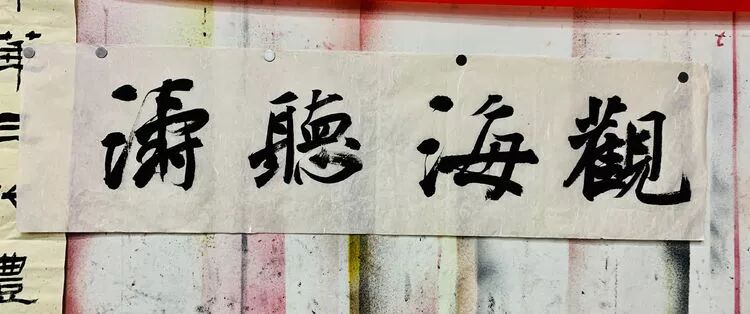 觀海聽濤
豊